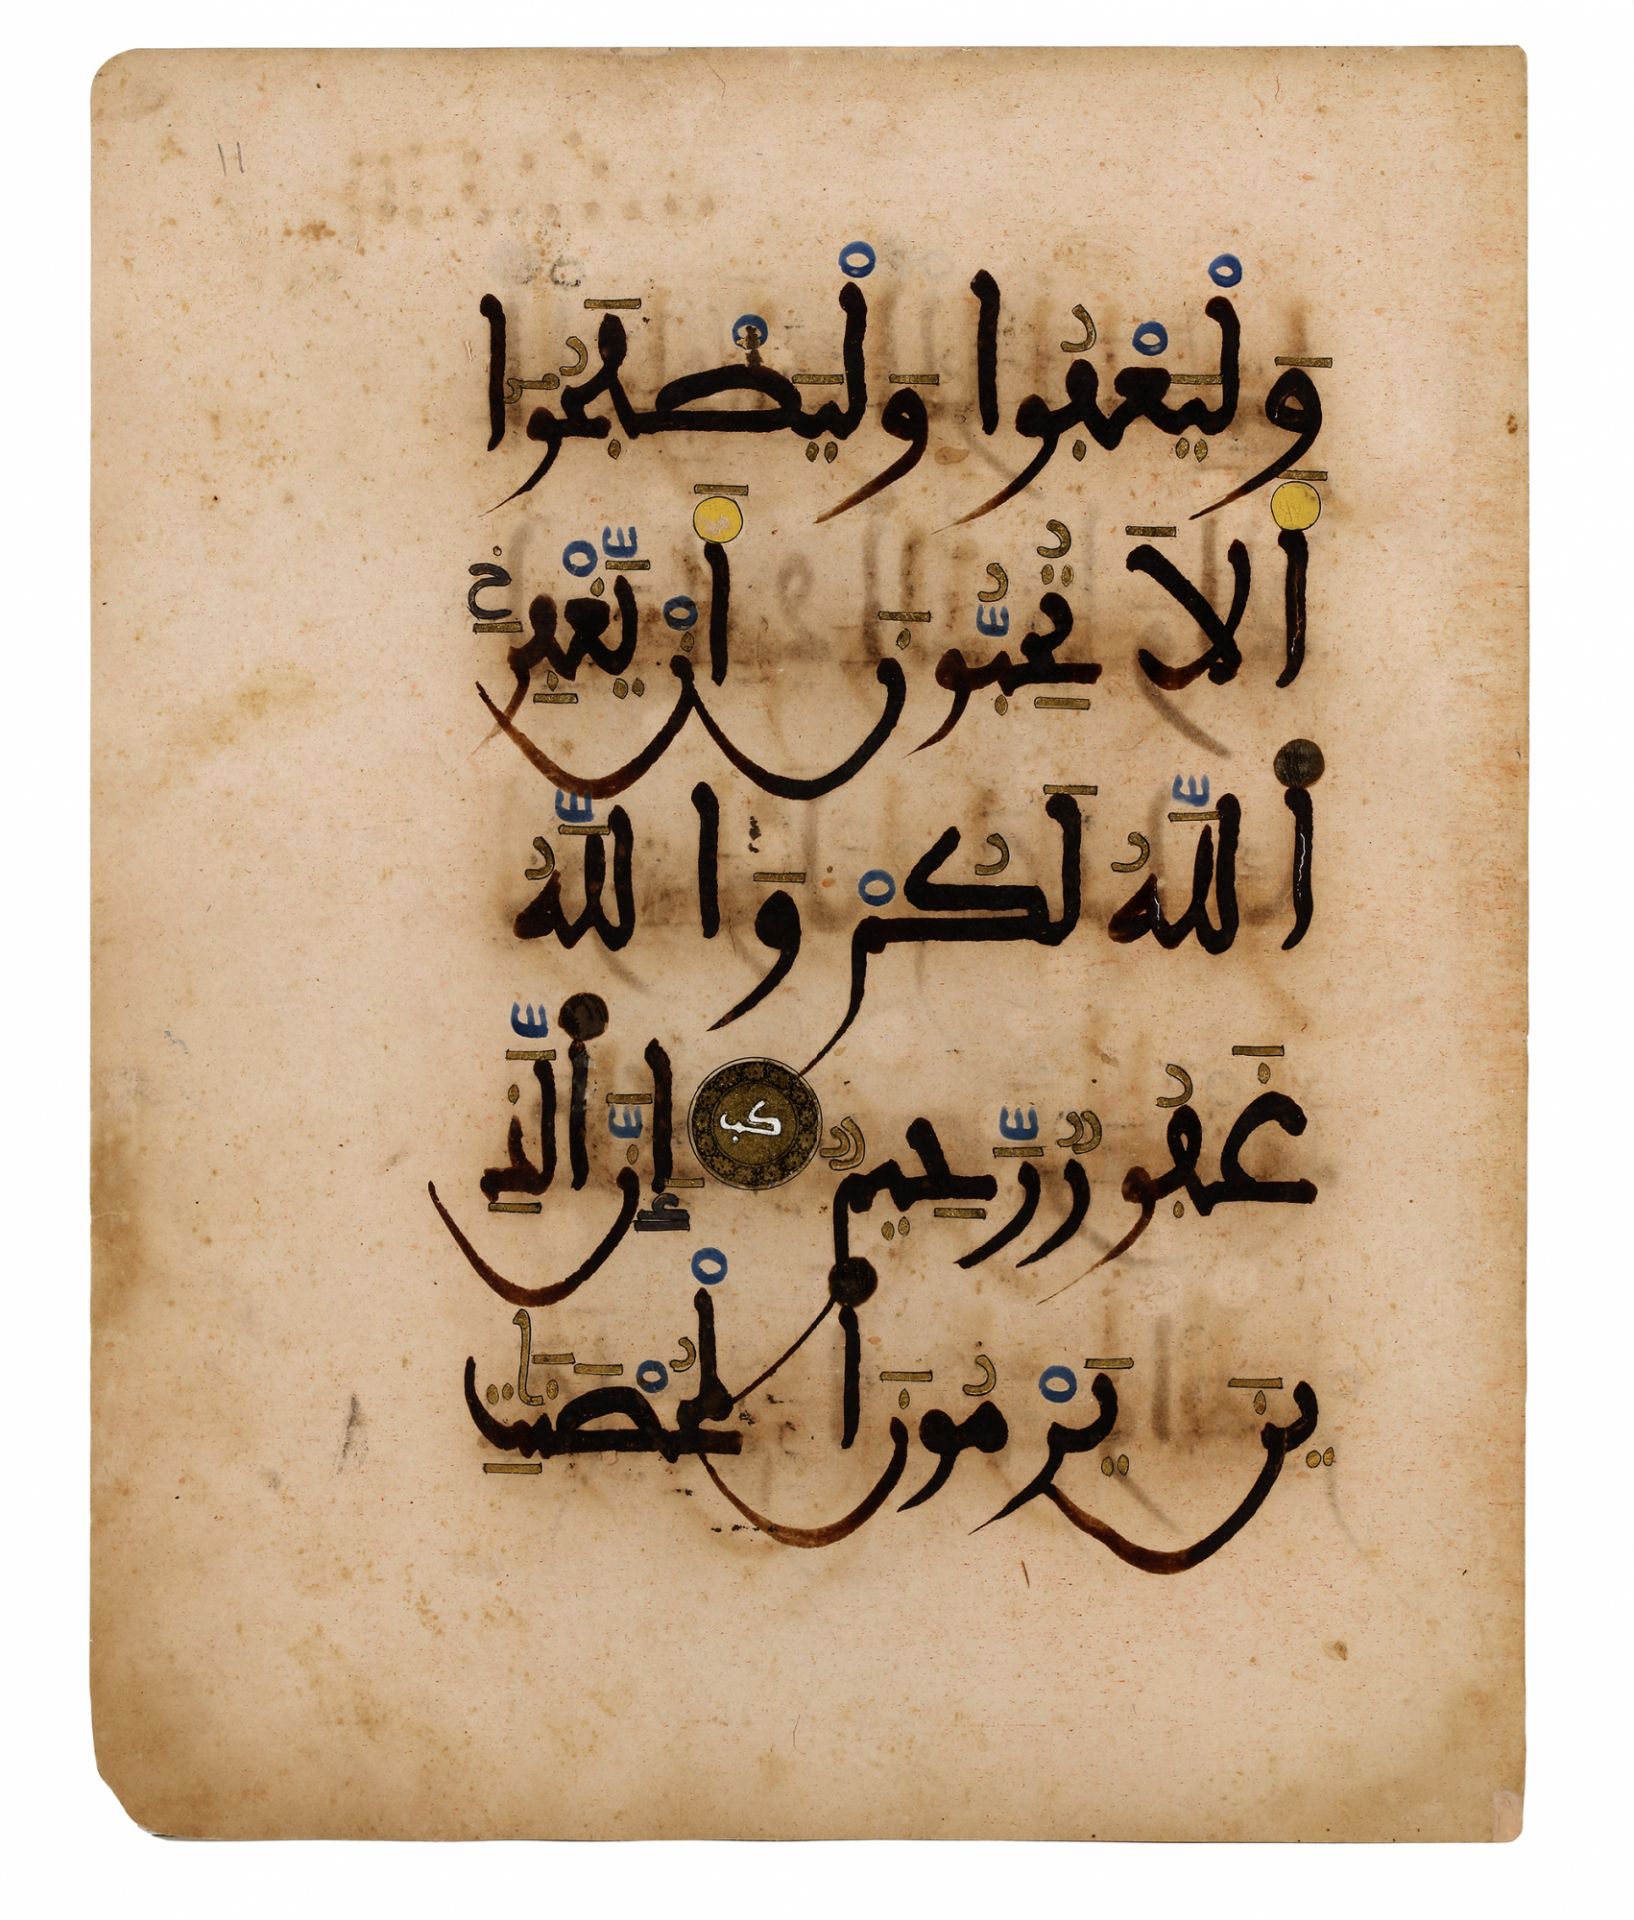 11
وَلْيَعْفُوا وَلْيَصْفَحُوا
أَلَا تُحِبُّونَ أَنْ يَّغْفِرَ
اَللَّهُ لَكُمْ وَاللَّهُ
غَفُورٌ رَّحِيمٌ كب إِنَّ اَلَّذِ
ينَ يَرْمُونَ اَلْمُحْصَنَٰتِ